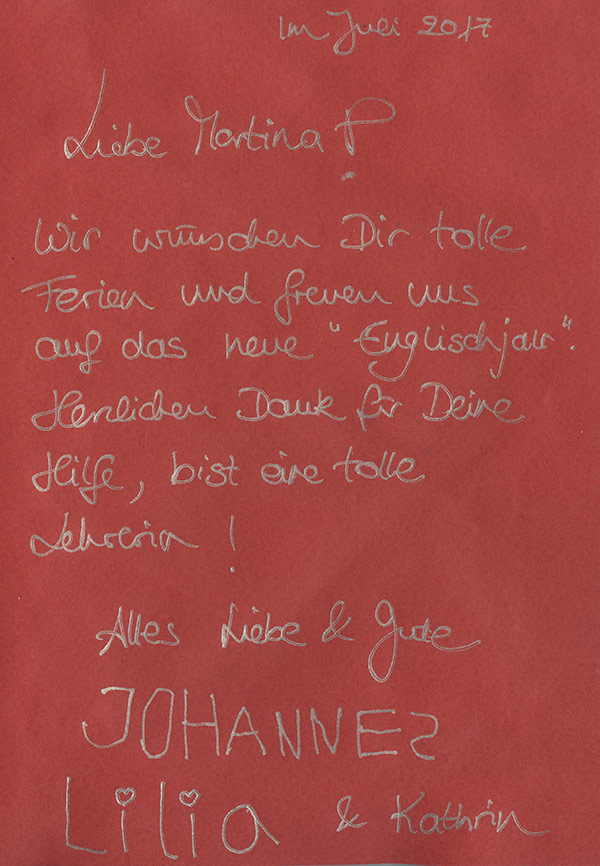 Im Juli 2017
Liebe Martina!
Wir wünschen Dir tolle
Ferien und freuen uns
auf das neue "Englischjahr".
Herzlichen Dank für Deine
Hilfe, bist eine tolle
Lehrerin!
Alles Liebe & Gute
JOHANNES
Lilia & Kathrin